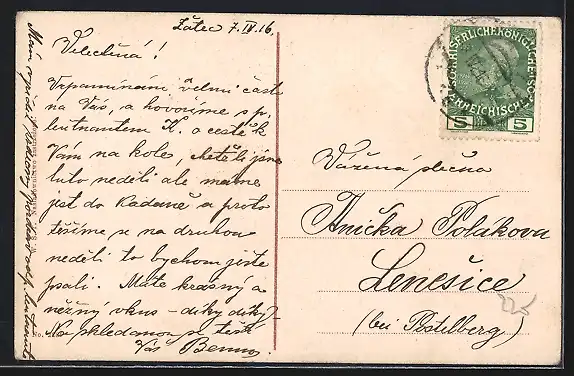 Žatec 7. IV. 16.
Velectěná!
Vzpomínám velmi často
na Vás, a hovoříme s p.
leutnantem K. o cestě k
Vám na kole, chtěli jsme
tuto neděli ale máme
jet do Kadaně a proto
těšíme se na druhou
neděli to bychom jistě
psali. Máte krásný a
něžný vkus – díky díky?
Na shledanou se těší
Váš Benno.
Vážená slečna
Anička Poláková
Lenešice
(bei Postelberg)
225
5 5